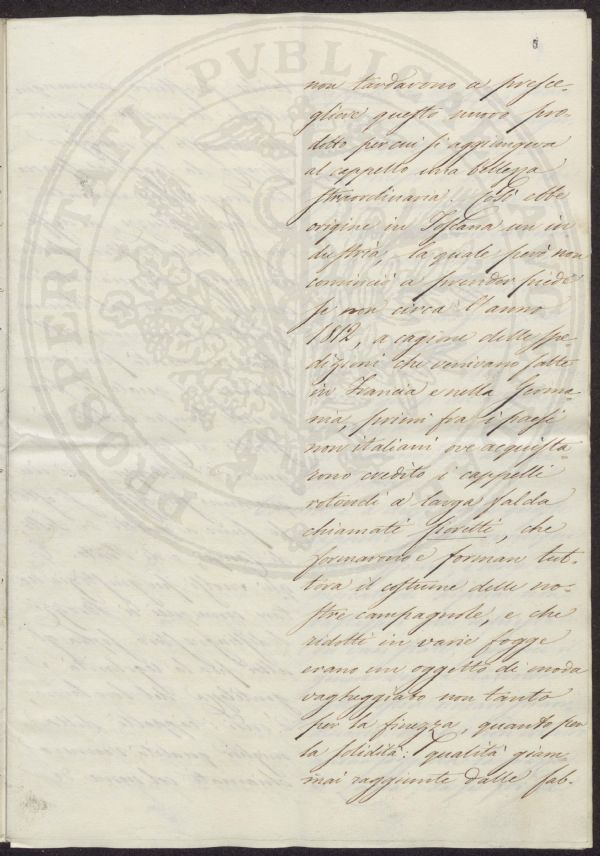 PROSPERITATI PVBLICAE
8
non tardarono a presce-
gliere questo nuovo pro-
dotto per cui si aggiungeva
al cappello una bellezza
straordinaria. Così ebbe
origine in Toscana un in
dustria, la quale però non
cominciò a prender piede
se non circa l'anno
1812, a cagione delle spe-
dizioni che venivano fatte
in Francia e nella Germa-
nia, primi fra i paesi
non italiani ove acquista-
rono credito i cappelli
rotondi a larga falda
chiamati fioretti, che
formavano e forman tut-
tora il costume delle no-
stre campagnole, e che
ridotti in varie fogge
erano un oggetto di moda
vagheggiato non tanto
per la finezza, quanto per
la solidità: qualità giam-
mai raggiunte dalle fab-